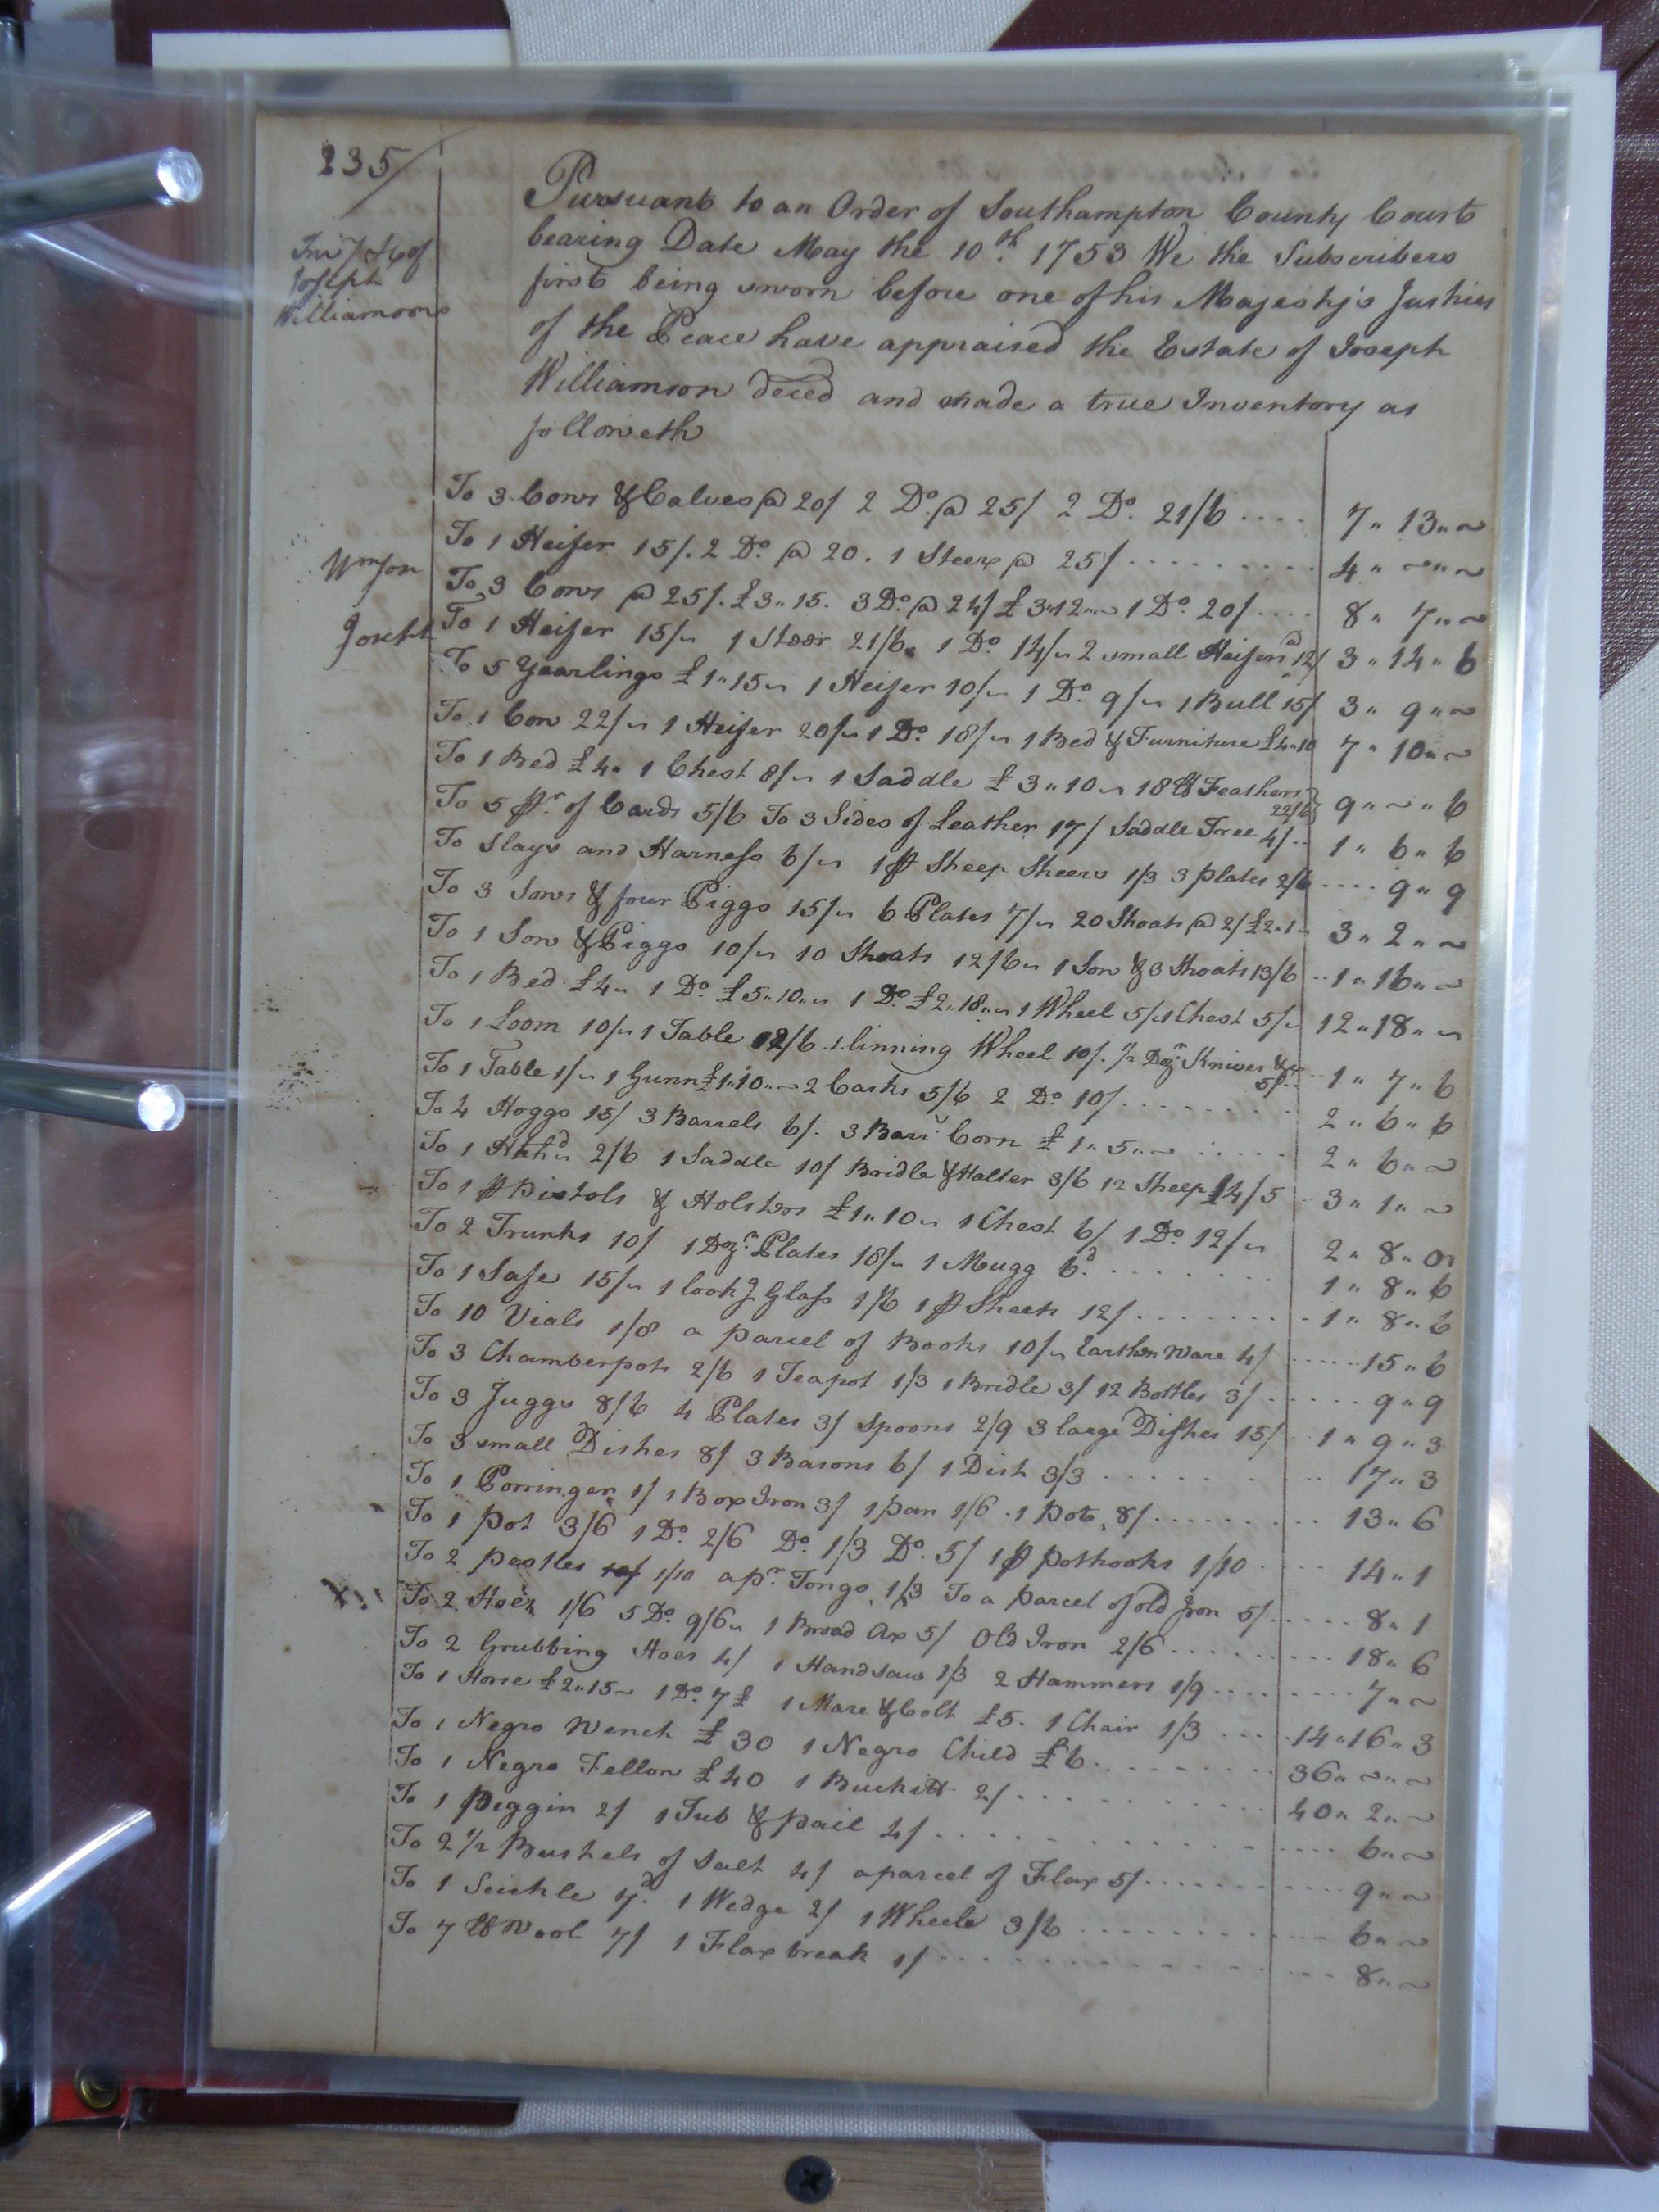 235/
Inv.y &c of
Joseph
Williamsons
Pursuant to an Order of Southampton County Court
bearing Date May the 10th. 1753 We the Subscribers
first being sworn before one of his Majesty's Justices
of the Peace have appraised the Estate of Joseph
Williamson deced and made a true Inventory as
followeth
To 3 Cows & Calves @ 20/ 2 Do. @ 25/ 2 Do. 21/6 .... 7 " 13 " ~
To 1 Heifer 15/. 2 Do. @ 20. 1 Steer @ 25/ ......... 4 " ~ " ~
Wmson
To 3 Cows @ 25/. £3 " 15. 3 Do. @ 24/ £3 " 12 " ~ 1 Do. 20/ .... 8 " 7 " ~
Joseph
To 1 Heifer 15/~ 1 Steer 21/6. 1 Do. 14/~ 2 small Heifers @ 12/ 3 " 14 " 6
To 5 Yearlings £1 " 15 ~ 1 Heifer 10/~ 1 Do. 9/~ 1 Bull 15/ 3 " 9 " ~
To 1 Cow 22/~ 1 Heifer 20/~ 1 Do. 18/~ 1 Bed & Furniture £4 " 10 7 " 10 " ~
To 1 Bed £4 " 1 Chest 8/~ 1 Saddle £3 " 10 ~ 18 lb Feathers 22/6 } 9 " ~ " 6
To 5 pr. of Cards 5/6 To 3 Sides of Leather 17/ Saddle Tree 4/ .. 1 " 6 " 6
To Slays and Harness 6/~ 1 p Sheep Sheers 1/3 3 plates 2/6 .... 9 " 9
To 3 Sows & four Piggs 15/~ 6 Plates 7/~ 20 Shoats @ 2/ £2 " 1 ~ 3 " 2 " ~
To 1 Sow & Piggs 10/~ 10 Shoats 12/6 ~ 1 Sow & 3 Shoats 13/6 .. 1 " 16 " ~
To 1 Bed £4 ~ 1 Do. £5 " 10 " ~ 1 Do. £2 " 18 " ~ 1 Wheel 5/~ 1 Chest 5/~ 12 " 18 " ~
To 1 Loom 10/~ 1 Table 12/6 1 linning Wheel 10/. 1/2 Dozn. Knives &c 5/ .. 1 " 7 " 6
To 1 Table 1/~ 1 Gunn £1 " 10 " ~ 2 Casks 5/6 2 Do. 10/ ........ 2 " 6 " 6
To 4 Hoggs 15/ 3 Barrels 6/. 3 Barrs Corn £1 " 5 " ~ ..... 2 " 6 " ~
To 1 Hhd ~ 2/6 1 Saddle 10/ Bridle & Halter 3/6 12 Sheep £4/5 . 3 " 1 " ~
To 1 p Pistols & Holsters £1 " 10 ~ 1 Chest 6/ 1 Do. 12/~ 2 " 8 " 0
To 2 Trunks 10/ 1 Dozn. Plates 18/~ 1 Mugg 6d. ........ 1 " 8 " 6
To 1 Safe 15/~ 1 lookg Glass 1/6 1 p Sheets 12/ ........ 1 " 8 " 6
To 10 Vials 1/8 a parcel of Books 10/~ Earthen Ware 4/ ..... 15 " 6
To 3 Chamberpots 2/6 1 Teapot 1/3 1 Bridle 3/ 12 Bottles 3/ ...... 9 " 9
To 3 Juggs 8/6 4 Plates 3/ Spoons 2/9 3 large Dishes 15/ .. 1 " 9 " 3
To 3 small Dishes 8/ 3 Basons 6/ 1 Dish 3/3 ........ 17 " 3
To 1 Porringer 1/ 1 Box Iron 3/ 1 pan 1/6 . 1 Pot 8/ ......... 13 " 6
To 1 pot 3/6 1 Do. 2/6 Do. 1/3 Do. 5/ 1 p pothooks 1/10 .... 14 " 1
To 2 pestles 1/10 a pr. Tongs 1/3 To a parcel of old Iron 5/ ..... 8 " 1
To 2 Hoes 1/6 5 Do. 9/6 ~ 1 Broad Ax 5/ Old Iron 2/6 ......... 18 " 6
To 2 Grubbing Hoes 4/ 1 Handsaw 1/3 2 Hammers 1/9 ........ 7 " ~
To 1 Horse £2 " 15 ~ 1 Do. 7£ 1 Mare & Colt £5. 1 Chair 1/3 .... 14 " 16 " 3
To 1 Negro Wench £30 1 Negro Child £6 ......... 36 " ~ " ~
To 1 Negro Fellow £40 1 Buckitt 2/ ........... 40 " 2 " ~
To 1 Piggin 2/ 1 Tub & pail 4/ .............. 6 " ~
To 2 1/2 Bushels of Salt 4/ a parcel of Flax 5/ ........... 9 " ~
To 1 Seickle 7d. 1 Wedge 2/ 1 Wheele 3/6 .............. 6 " ~
To 7 lb Wool 7/ 1 Flax break 1/ ................ 8 " ~